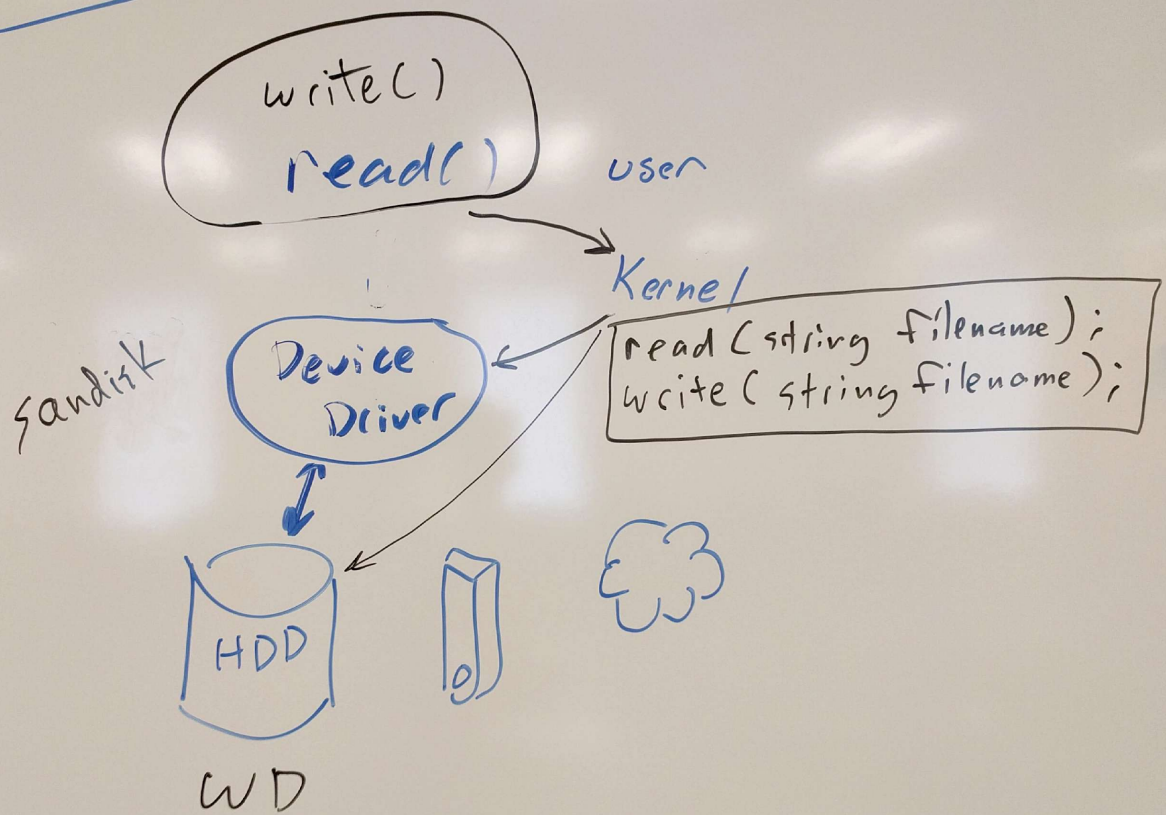 write()
read()
user
Kernel
read(string filename);
write(string filename);
Device
Driver
sandisk
HDD
WD